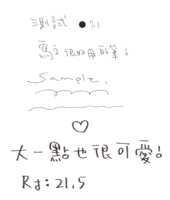 測試 ● 21
寫起很好的筆！
Sample.
大一點也很可愛！
Rも: 21.5